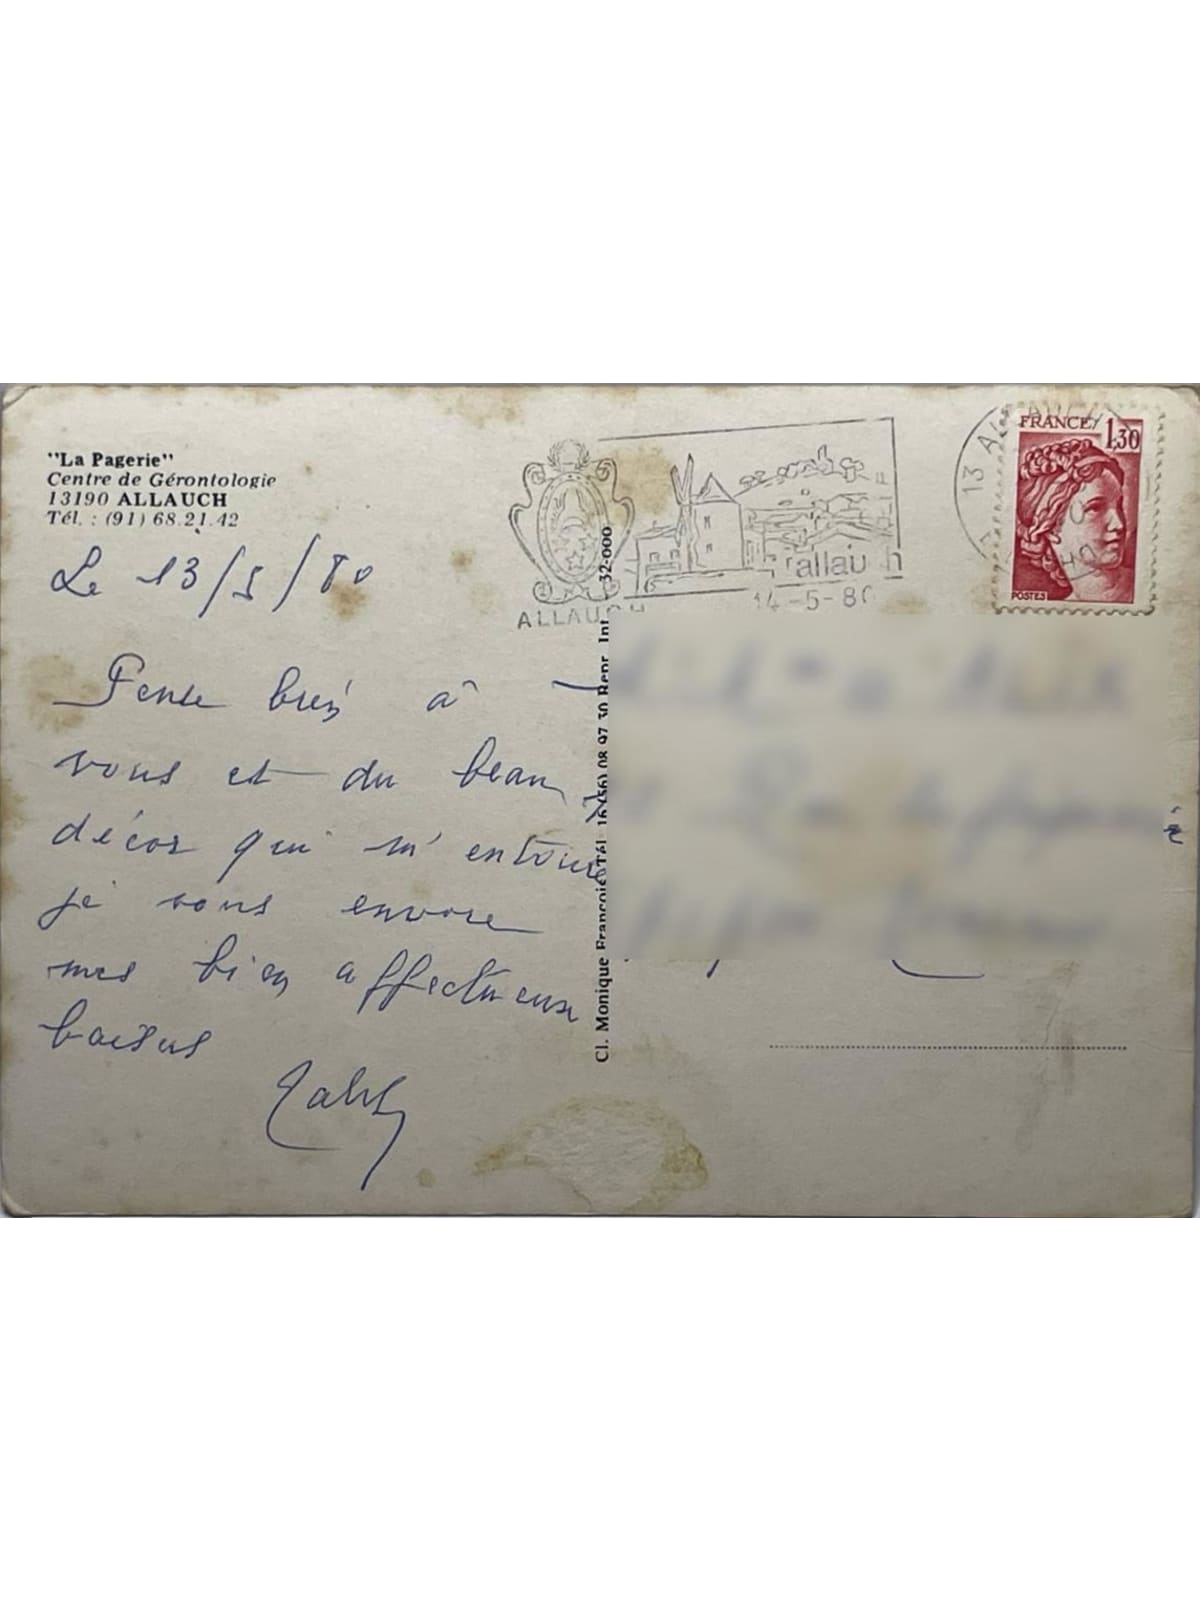 "La Pagerie"
Centre de Gérontologie
13190 ALLAUCH
Tél. : (91) 68.21.42
Le 13/5/80
Pense bien à
vous et du beau
décor qui m'entoure
je vous envoie
mes bien affectueux
baisers
ALLAUCH
allauch
14-5-80
13 ALLAUCH
FRANCE 1,30
POSTES
Cl. Monique François Tél. 16 (56) 08 97 30 Repr. Int. 32-000